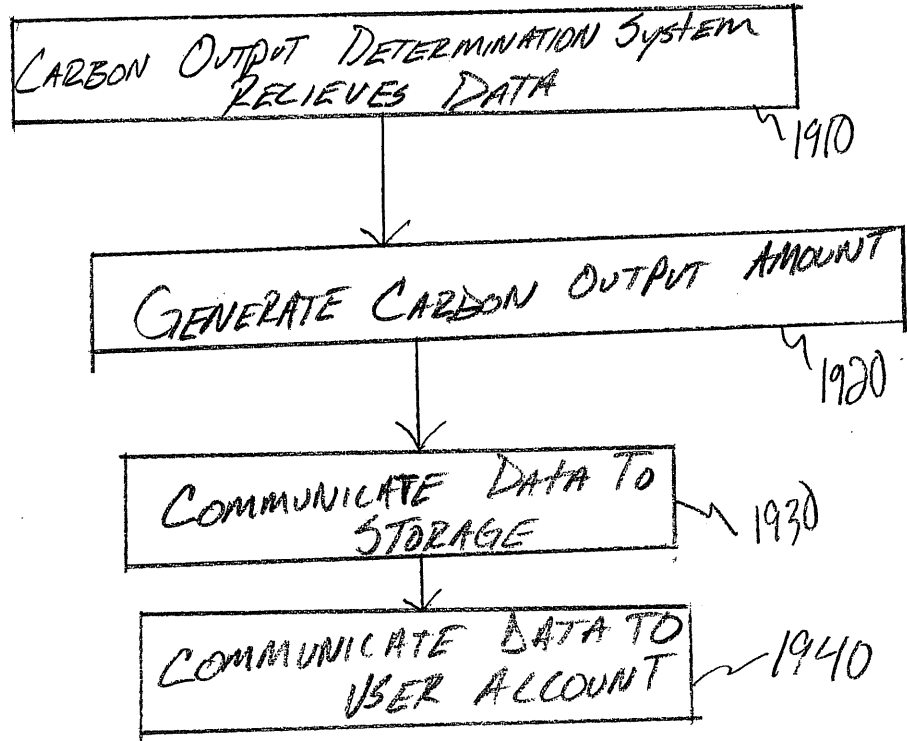 CARBON OUTPUT DETERMINATION System
RECIEVES DATA
1910
GENERATE CARBON OUTPUT AMOUNT
1920
COMMUNICATE DATA TO
STORAGE
1930
COMMUNICATE DATA TO
USER ACCOUNT
1940